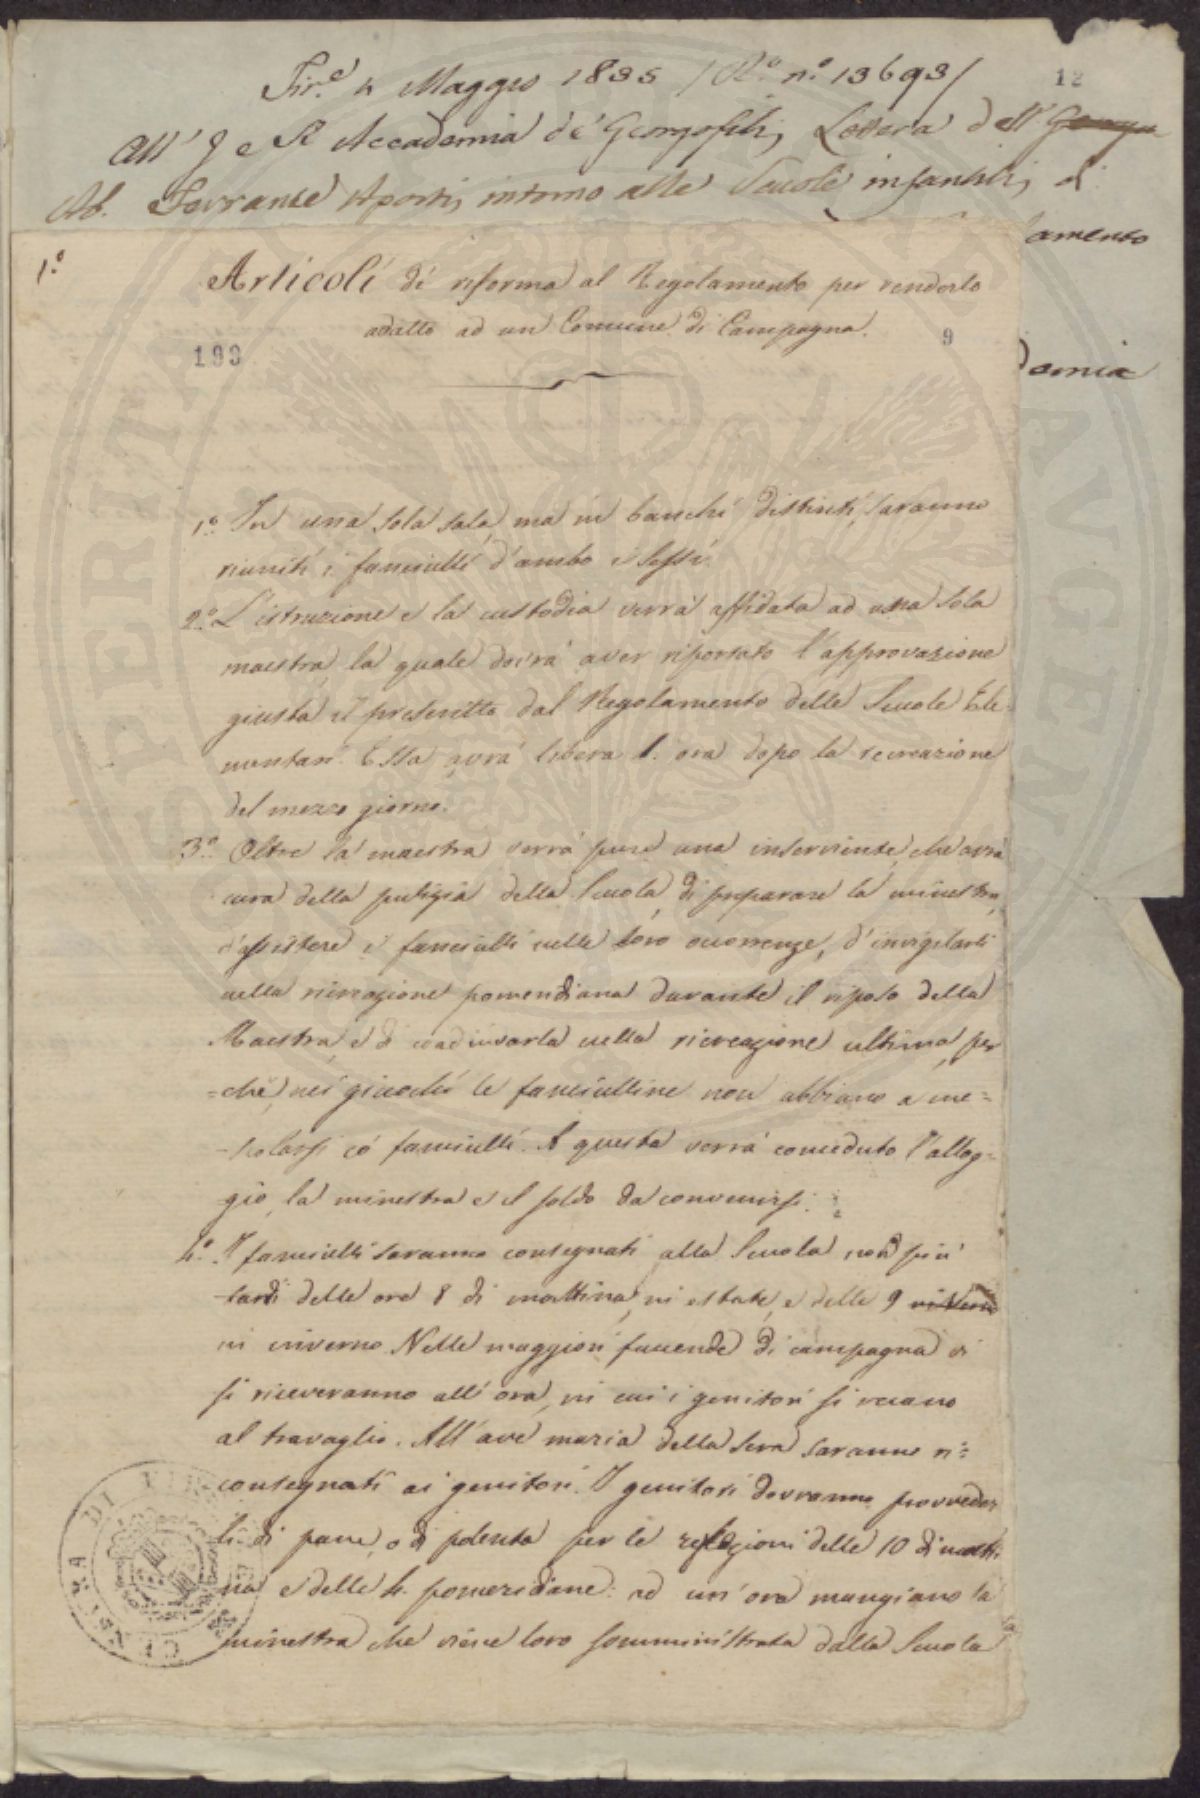 Fir.e 4 Maggio 1835 / Ro. n.o 13693/
12
All' J e R Accademia de' Georgofili, Lettera dell'
Ab. Ferrante Aporti, intorno alle Scuole infantili, di
amento
1.o
Articoli di riforma al Regolamento per renderlo
adatto ad un Comune di Campagna.
193
9
damia
1.o In una sola sala, ma in banchi distinti, saranno
riuniti i fanciulli d'ambo i sessi.
2.o L'istruzione e la custodia verrà affidata ad una sola
maestra, la quale dovrà aver riportato l'approvazione
giusta il prescritto dal Regolamento delle Scuole Ele-
mentari. Essa avrà libera 1. ora dopo la recreazione
del mezzo giorno.
3.o Oltre la maestra verrà pure una inserviente, che avrà
cura della pulizia della Scuola, di preparare la minestra,
d'assistere i fanciulli nelle loro occorrenze, d'invigilarli
nella ricreazione pomeridiana durante il riposo della
Maestra, e di coadiuvarla nella ricreazione ultima, per
=chè nei giuochi le fanciulline non abbiano a me=
-scolarsi co' fanciulli. A questa verrà conceduto l'allog=
gio, la minestra e il soldo da convenirsi.
4.o I fanciulli saranno consegnati alla Scuola non più
tardi delle ore 8 di mattina, in estate, e delle 9
in inverno. Nelle maggiori faccende di campagna vi
si riceveranno all'ora, in cui i genitori si recano
al travaglio. All'ave maria della sera saranno ri=
consegnati ai genitori. I genitori dovranno provveder
li di pane, o di polenta per le refezioni delle 10 di matti
na e delle 4. pomeridiane: ad un'ora mangiano la
minestra che viene loro somministrata dalla Scuola